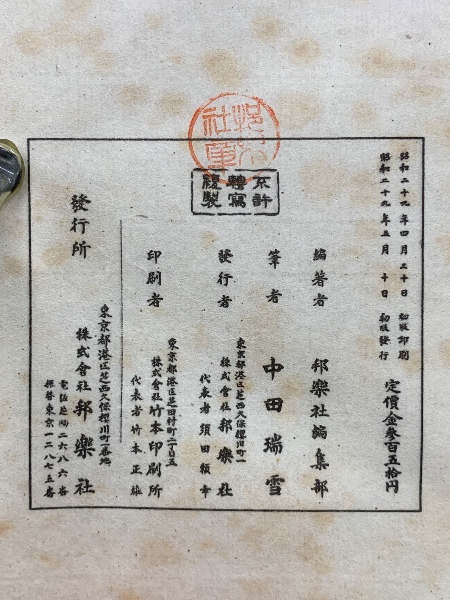 昭和二十九年四月三十日 初版印刷
昭和二十九年五月十日 初版發行
定價金參百五拾円
不許
轉寫
複製
編著者 邦樂社編集部
筆者 中田瑞雪
發行者
東京都港区芝西久保櫻川町一
株式會社邦樂社
代表者須田頼幸
印刷者
東京都港区芝田村町二丁目五
株式會社竹本印刷所
代表者竹本正雄
發行所
東京都港区芝西久保櫻川町一番地
株式會社邦樂社
電話芝㈣二六八六番
振替東京一二八七五番